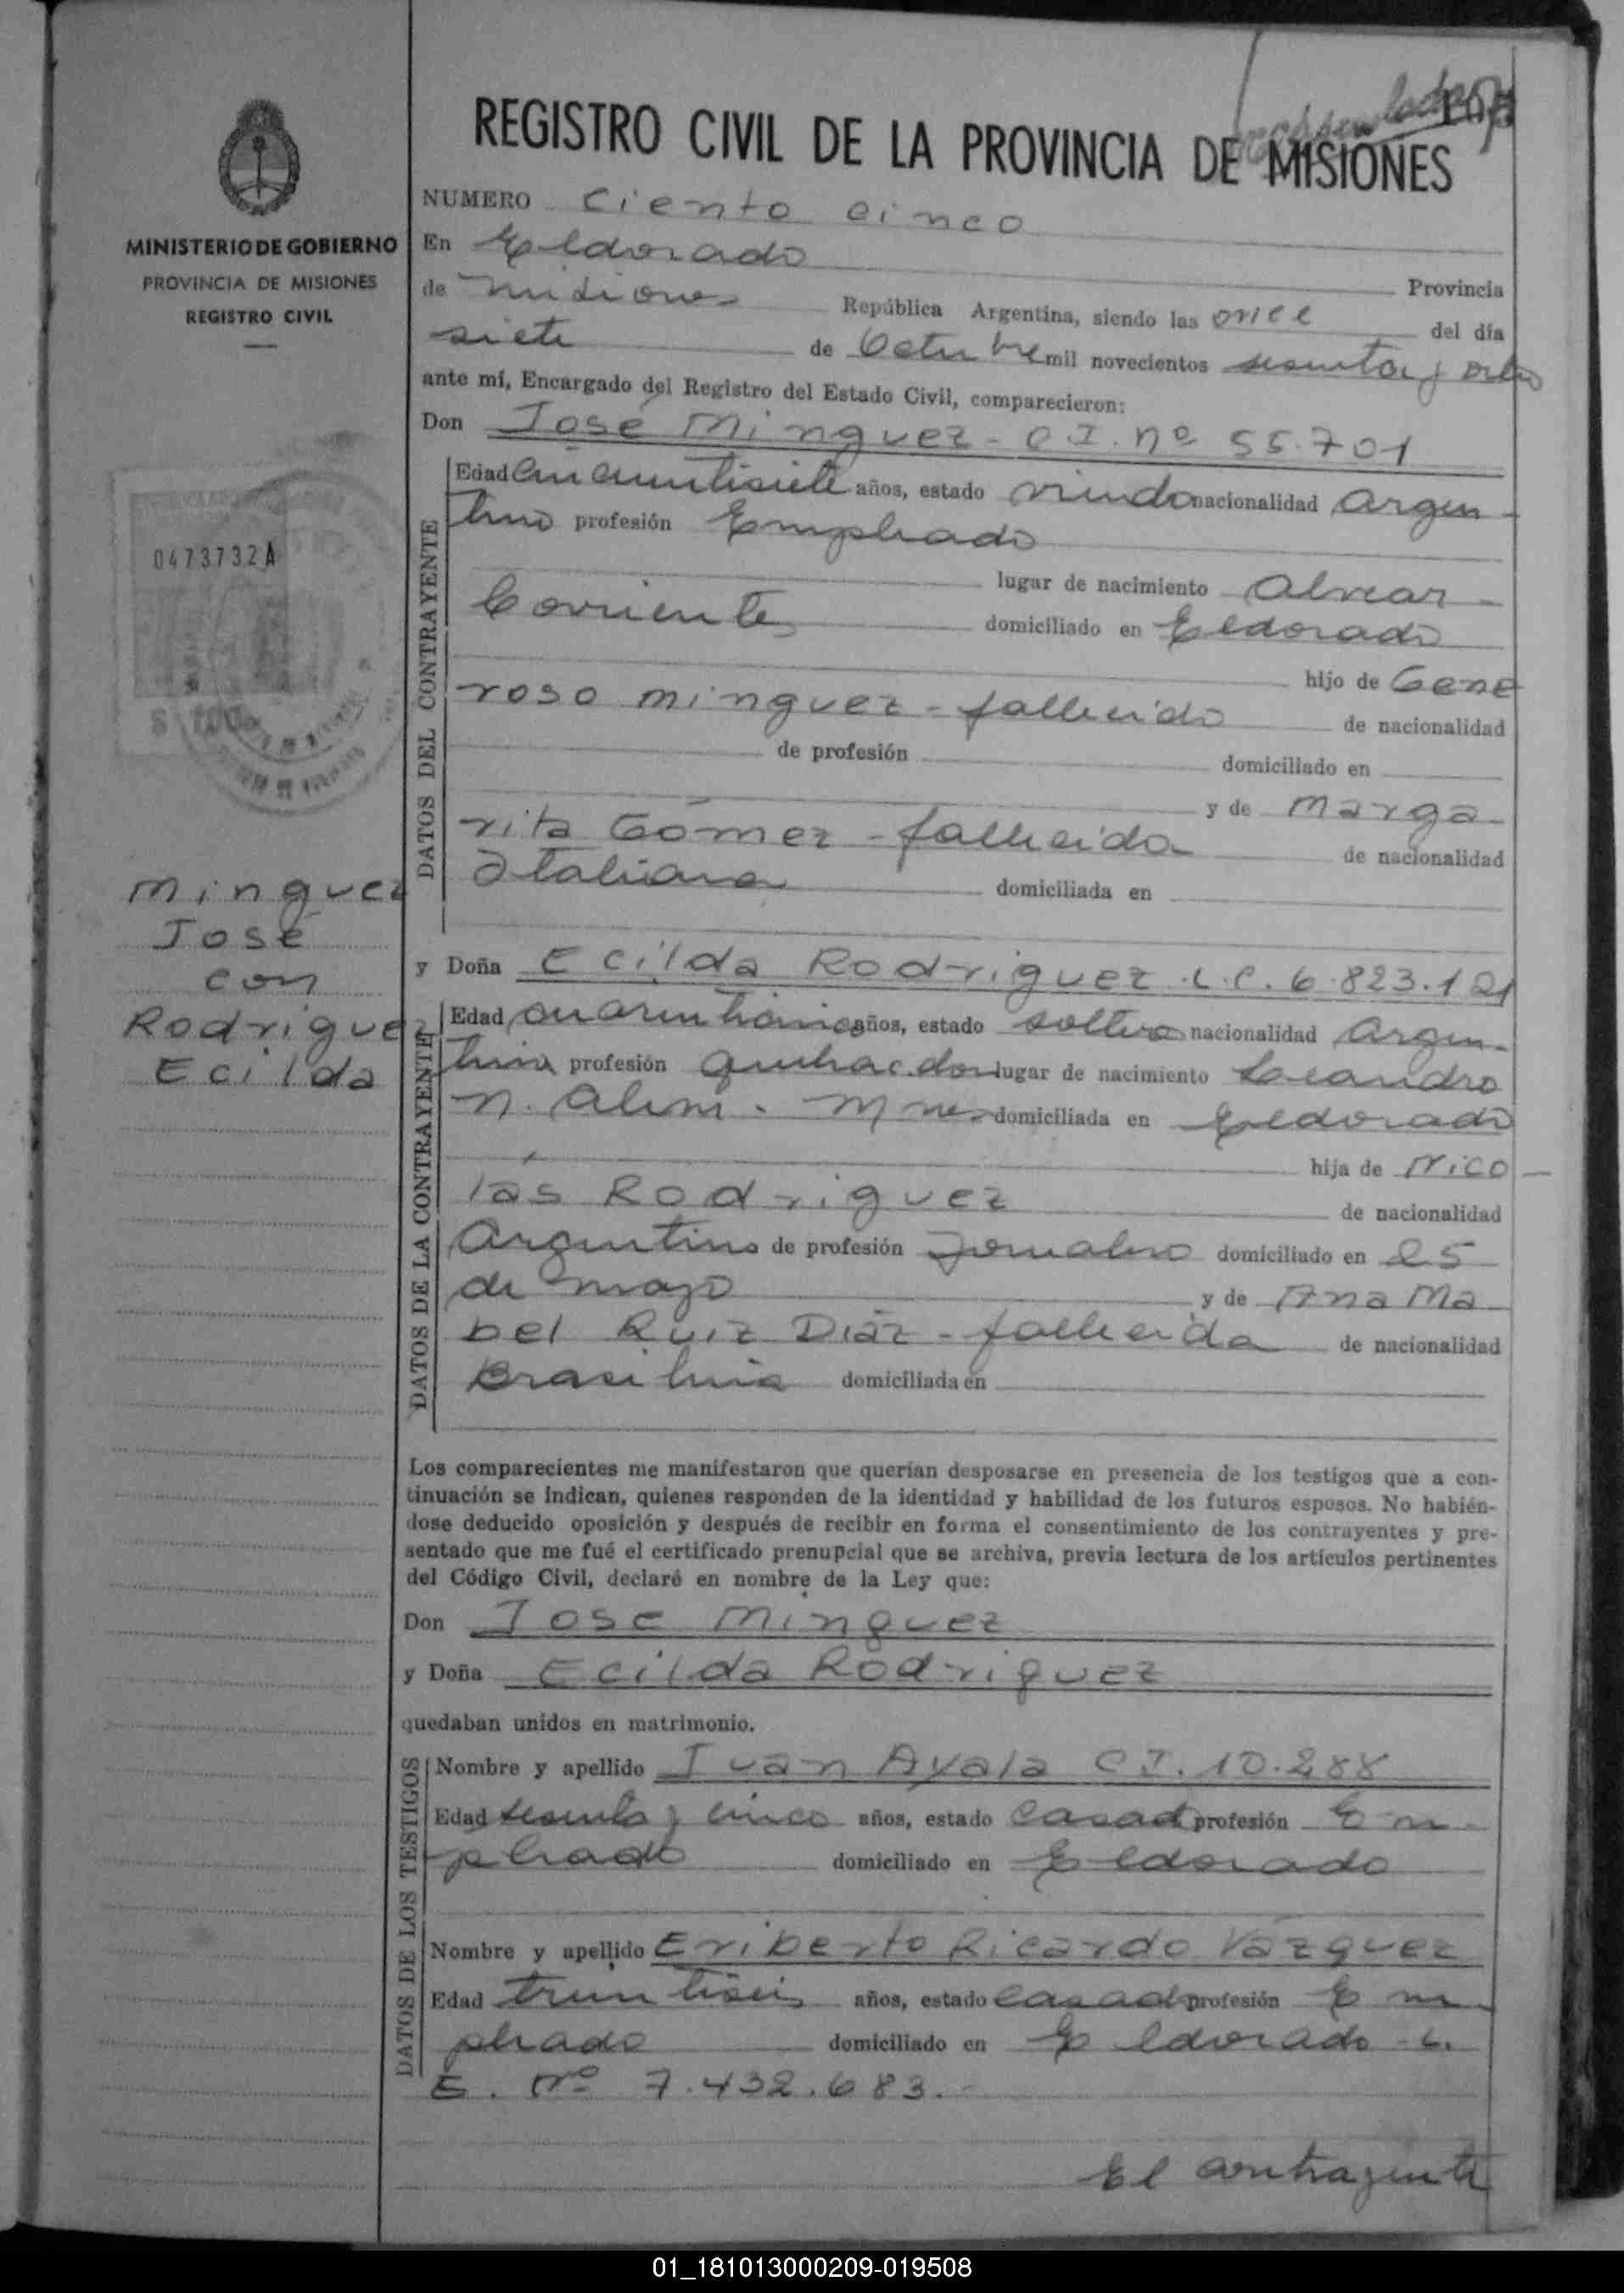 REGISTRO CIVIL DE LA PROVINCIA DE MISIONES
MINISTERIO DE GOBIERNO
PROVINCIA DE MISIONES
REGISTRO CIVIL
0473732 A
Minguez
José
con
Rodriguez
Ecilda
NUMERO Ciento cinco
En Eldorado
Provincia
de Misiones República Argentina, siendo las once del día
siete de Octubre mil novecientos sesenta y ocho
ante mí, Encargado del Registro del Estado Civil, comparecieron:
Don José Minguez - C.I. nº 55.701
DATOS DEL CONTRAYENTE
Edad cincuentisiete años, estado viudo nacionalidad Argen-
tino profesión Empleado
lugar de nacimiento Alvear -
Corrientes domiciliado en Eldorado
hijo de Gene
roso Minguez - fallecido de nacionalidad
de profesión domiciliado en
y de Marga-
rita Gómez - fallecida de nacionalidad
Italiana domiciliada en
y Doña Ecilda Rodriguez - L.C. 6.823.121
DATOS DE LA CONTRAYENTE
Edad cuarenticinco años, estado soltera nacionalidad Argen-
tina profesión Quehac. dom lugar de nacimiento Leandro
N. Alem - Mnes domiciliada en Eldorado
hija de Nico-
lás Rodriguez de nacionalidad
Argentino de profesión Jornalero domiciliado en 25
de Mayo y de Ana Ma
bel Ruiz Diaz - fallecida de nacionalidad
Brasileña domiciliada en
Los comparecientes me manifestaron que querían desposarse en presencia de los testigos que a con-
tinuación se indican, quienes responden de la identidad y habilidad de los futuros esposos. No habién-
dose deducido oposición y después de recibir en forma el consentimiento de los contrayentes y pre-
sentado que me fué el certificado prenupcial que se archiva, previa lectura de los artículos pertinentes
del Código Civil, declaré en nombre de la Ley que:
Don José Minguez
y Doña Ecilda Rodriguez
quedaban unidos en matrimonio.
DATOS DE LOS TESTIGOS
Nombre y apellido Juan Ayala C.I. 10.288
Edad sesenta y cinco años, estado casado profesión Em-
pleado domiciliado en Eldorado
Nombre y apellido Eriberto Ricardo Vazquez
Edad treintiseis años, estado casado profesión Em-
pleado domiciliado en Eldorado - L.
E. Nº 7.432.683.-
El contrayente
01_181013000209-019508